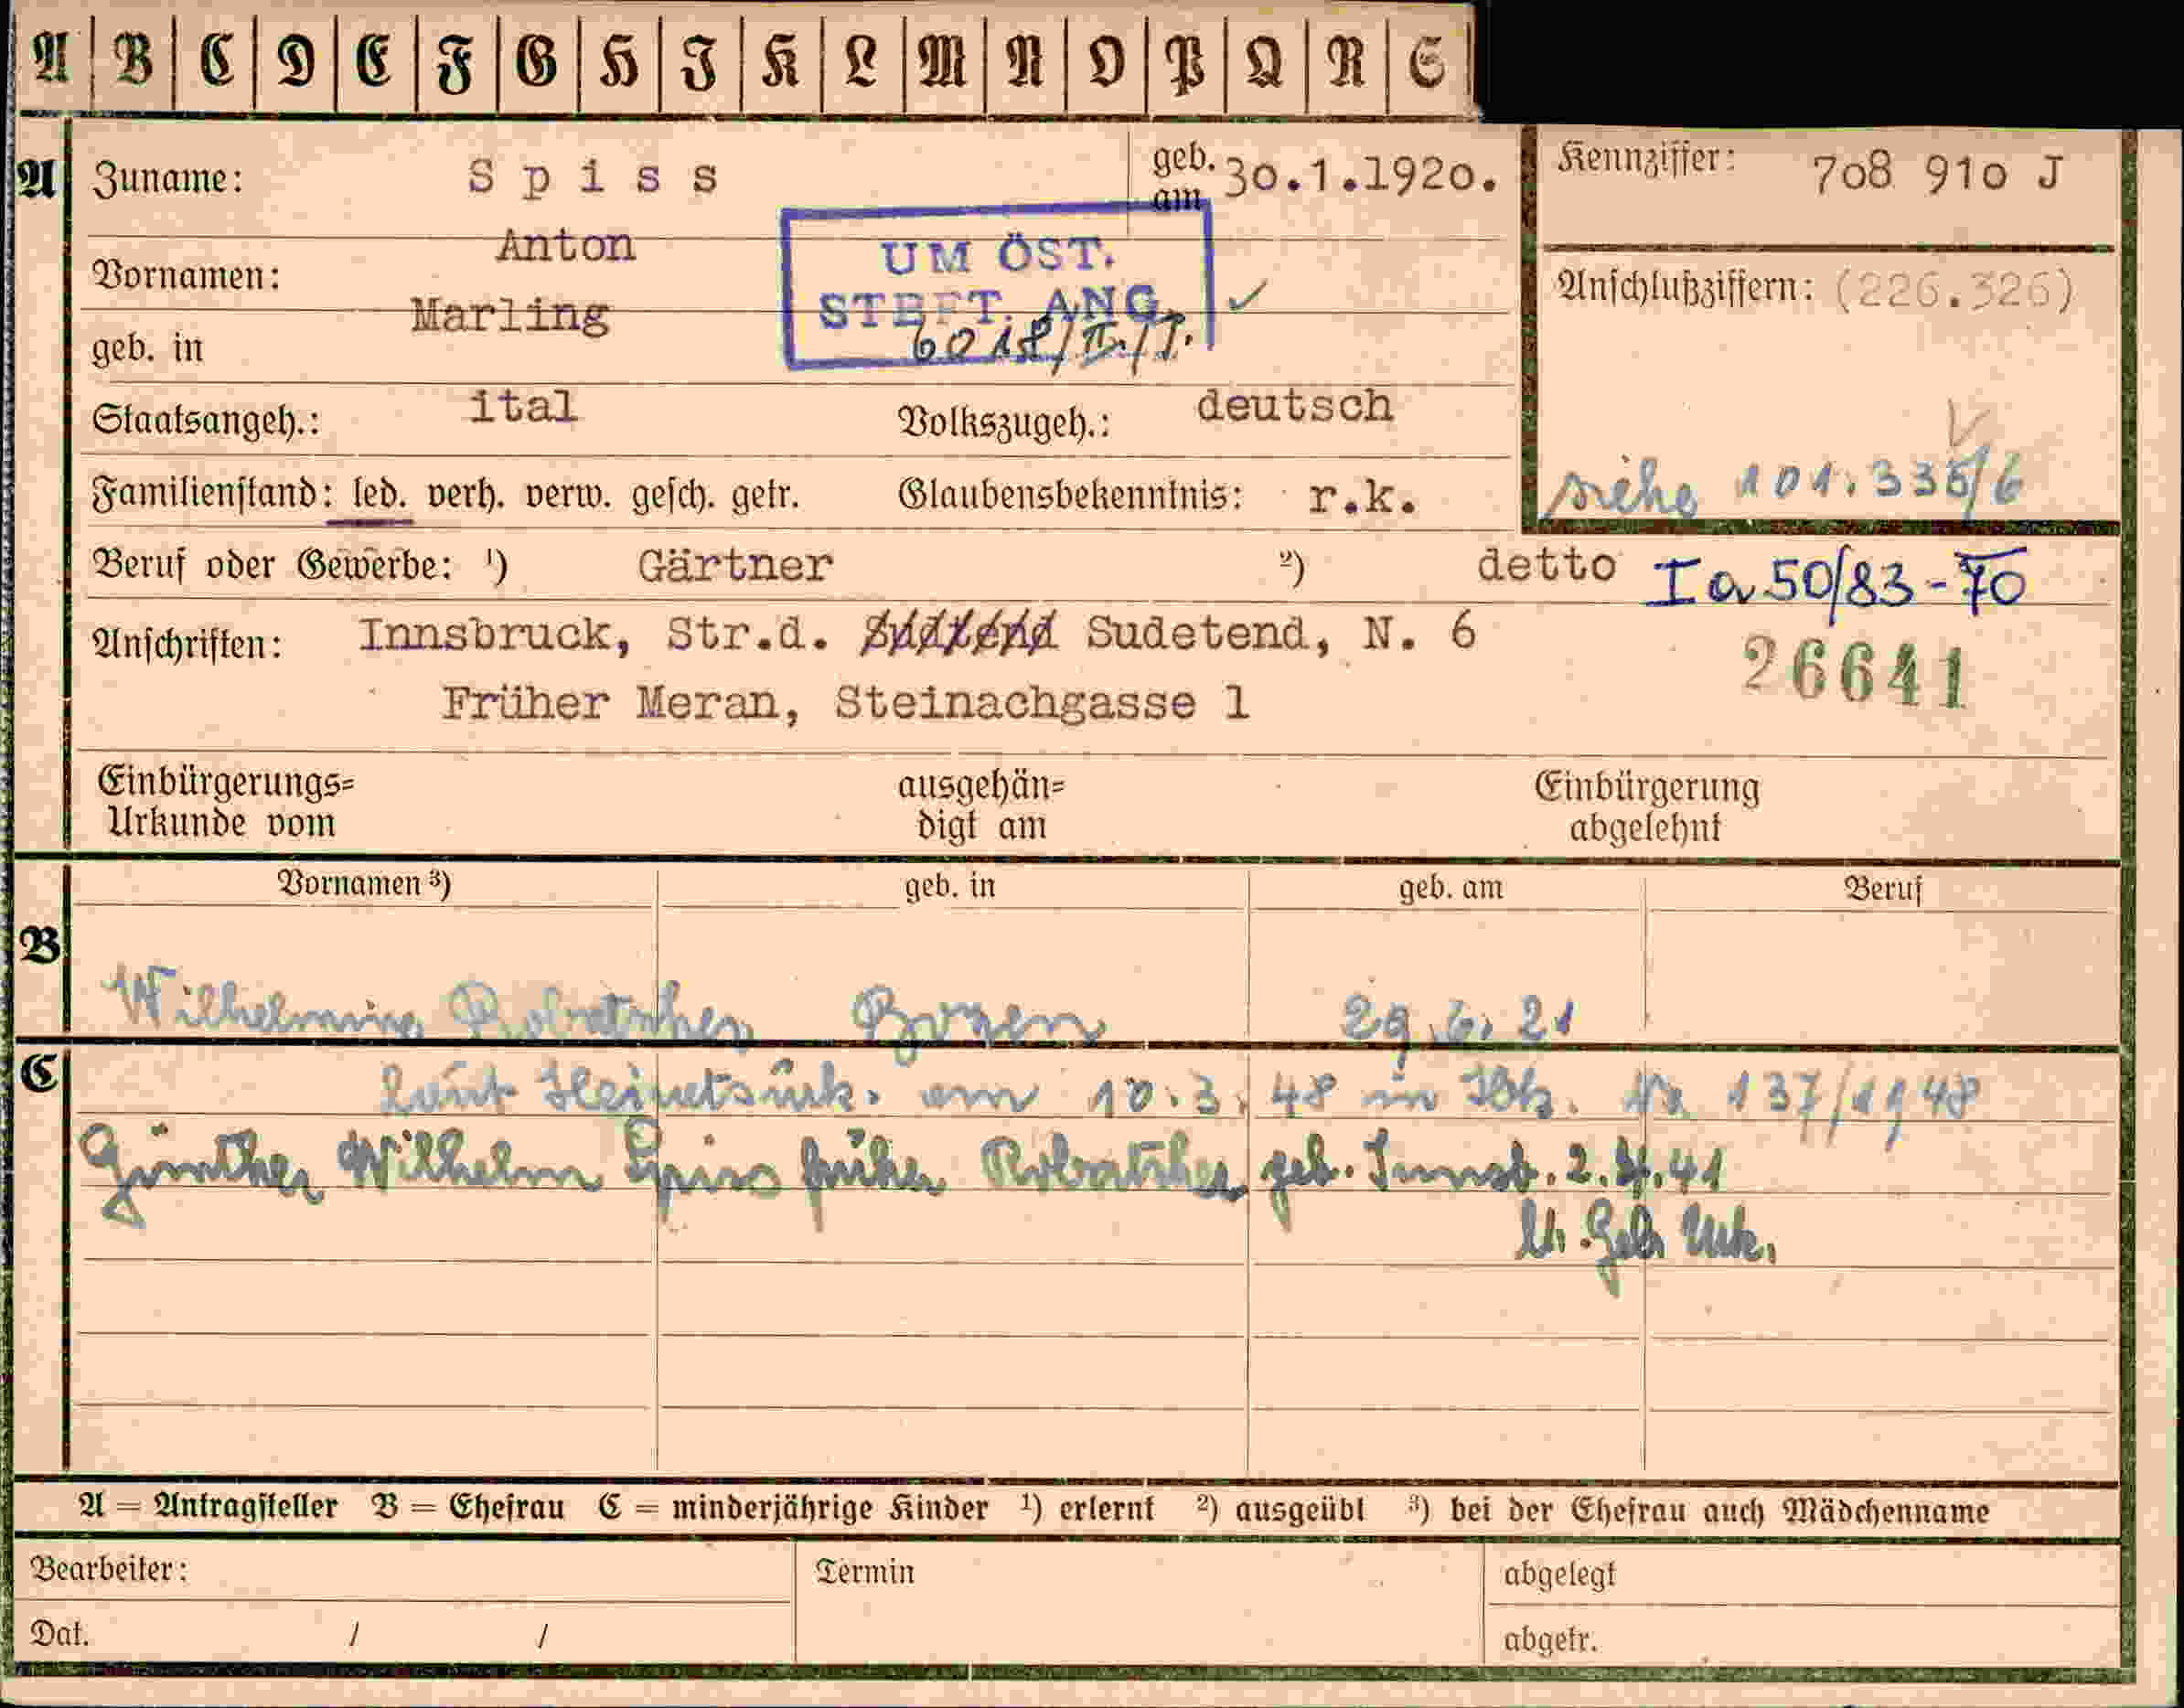 A B C D E F G H I K L M N O P Q R S
A Zuname: Spiss geb. am 30.1.1920. Kennziffer: 708 910 J
Vornamen: Anton
UM ÖST.
STBFT. ANG.
6018/II./J.
Anschlußziffern: (226.326)
geb. in Marling
Staatsangeh.: ital Volkszugeh.: deutsch
siehe 101.335/6
Familienstand: led. verh. verw. gesch. getr. Glaubensbekenntnis: r.k.
Beruf oder Gewerbe: ¹) Gärtner ²) detto Ia 50/83-70
Anschriften: Innsbruck, Str.d. Sudetend, N. 6
26641
Früher Meran, Steinachgasse 1
Einbürgerungs= ausgehän= Einbürgerung
Urkunde vom digt am abgelehnt
Vornamen ³) geb. in geb. am Beruf
B
Wilhelmine Robatscher Bozen 29.6.21
C
Laut Heiratsurk. am 10.3.48 in Ibk. Nr 137/1948
Günther Wilhelm Spiss früher Robatscher geb. Innsb. 2.4.41
lt. Geb Urk.
A = Antragsteller B = Ehefrau C = minderjährige Kinder ¹) erlernt ²) ausgeübt ³) bei der Ehefrau auch Mädchenname
Bearbeiter: Termin abgelegt
Dat. / / abgetr.